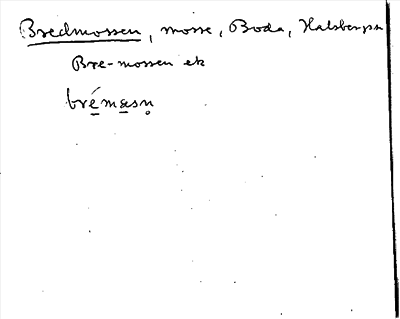 Bredmossen, mosse, Boda, Halsbergsn
Bre-mossen ek
brémäsn̥